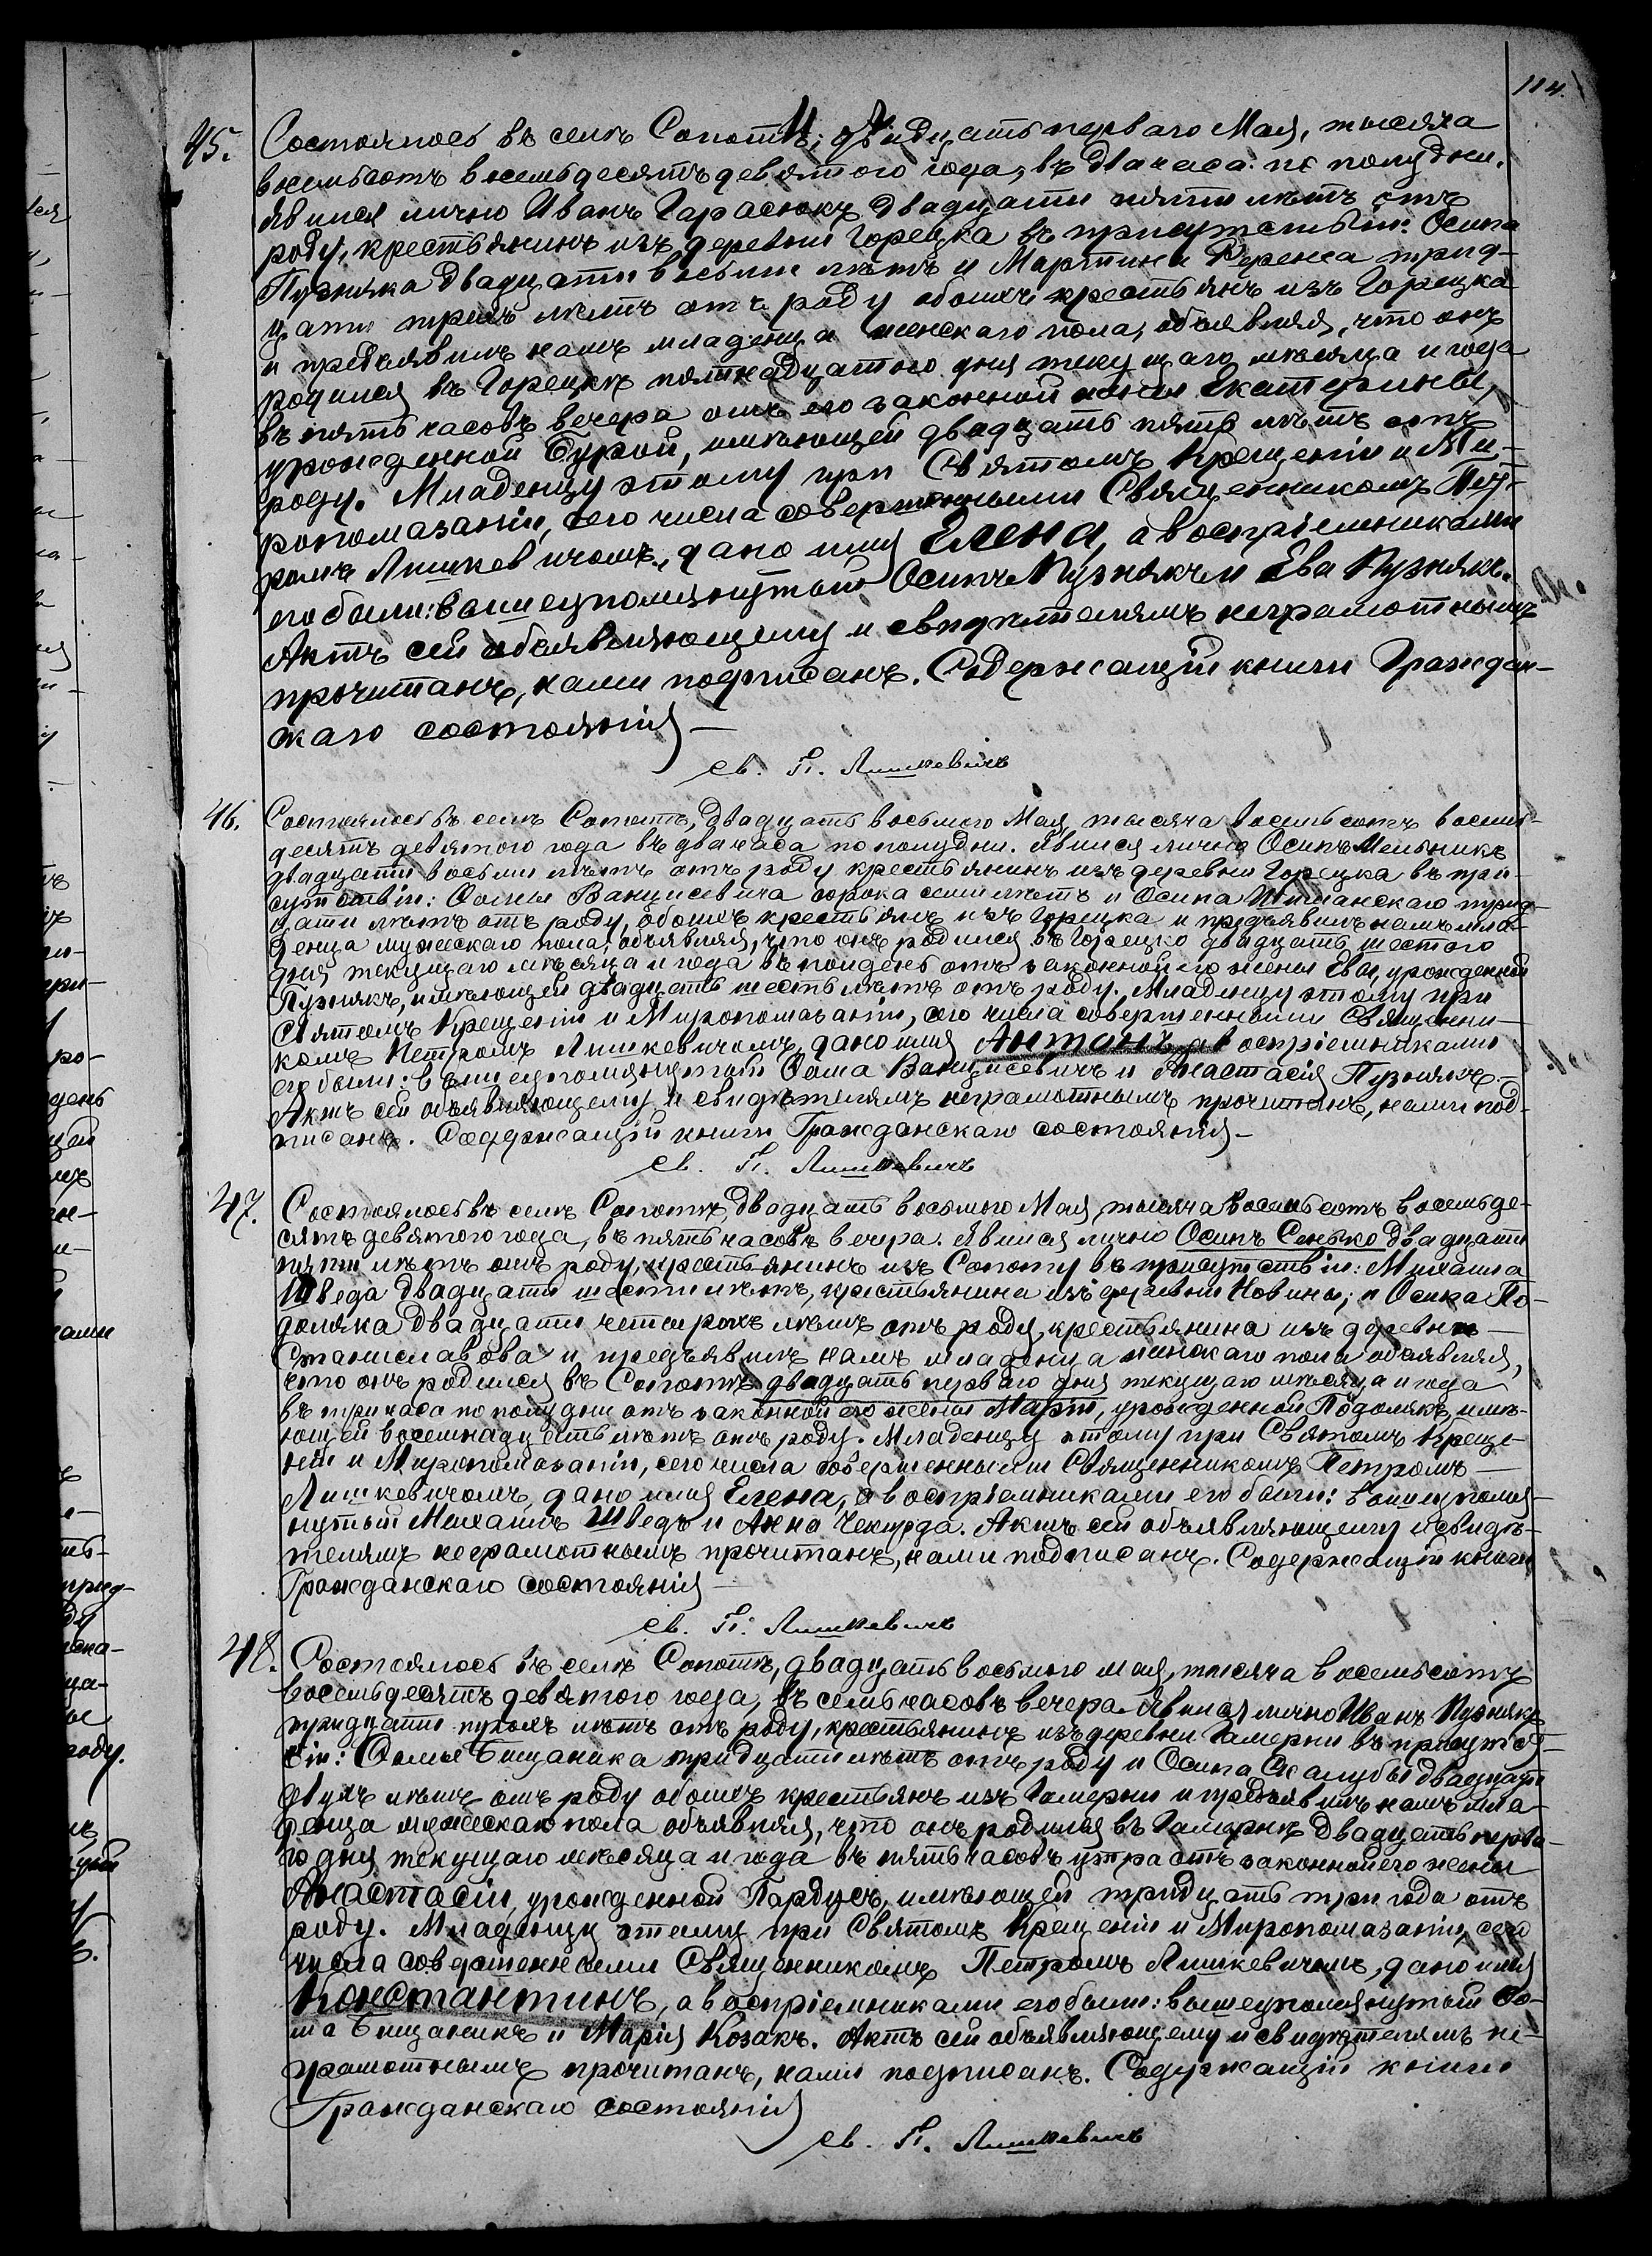 114.
45. Состоялось въ селѣ Сопотѣ, двадцать перваго Мая, тысяча
восемьсотъ восемьдесятъ девятого года, въ два часа по полудни.
Явился лично Иванъ Гарасюкъ двадцати пяти лѣтъ отъ
роду, крестьянинъ изъ деревни Горецка въ присутствіи: Осипа
Пузняка двадцати восьми лѣтъ и Мартина Ференса трид-
цати трехъ лѣтъ отъ роду обоихъ крестьянъ изъ Горецка
и предъявилъ намъ младенца женскаго пола, объявляя, что онъ
родился въ Горецкѣ пятнадцатого дня текущаго мѣсяца и года
въ пять часовъ вечера отъ его законной жены Екатерины,
урожденной Бурой, имѣющей двадцать пять лѣтъ отъ
роду. Младенцу этому при Святомъ Крещеніи и Ми-
ропомазаніи, сего числа совершенными Священникомъ Пет-
ромъ Лишкевичомъ, дано имя Елена, а воспріемниками
его были: вышеупомянутый Осипъ Пузнякъ и Ева Пузнякъ.
Актъ сей объявляющему и свидѣтелямъ неграмотнымъ
прочитанъ, нами подписанъ. Содержащій книги Граждан-
скаго состоянія —
св. П. Лишкевичъ
46. Состоялось въ селѣ Сопотѣ, двадцать восьмого Мая, тысяча восемьсотъ восемь-
десятъ девятого года въ два часа по полудни. Явился лично Осипъ Мельникъ
двадцати восьми лѣтъ отъ роду крестьянинъ изъ деревни Горецка въ при-
сутствіи: Фомы Ванцисевича сорока семи лѣтъ и Осипа Шиманскаго трид-
цати лѣтъ отъ роду, обоихъ крестьянъ изъ Горецка и предъявилъ намъ мла-
денца мужескаго пола, объявляя, что онъ родился въ Горецко двадцать шестого
дня текущаго мѣсяца и года въ полдень отъ законной его жены Евы, урожденной
Пузнякъ, имѣющей двадцать шесть лѣтъ отъ роду. Младенцу этому при
Святомъ Крещеніи и Миропомазаніи, сего числа совершенными Священни-
комъ Петромъ Лишкевичомъ, дано имя Антонъ, а воспріемниками
его были: вышеупомянутый Фома Ванцисевичъ и Анастасія Пузнякъ.
Актъ сей объявляющему и свидѣтелямъ неграмотнымъ прочитанъ, нами под-
писанъ. Содержащій книги Гражданскаго состоянія —
св. П. Лишкевичъ
47. Состоялось въ селѣ Сопотѣ двадцать восьмого Мая, тысяча восемьсотъ восемьде-
сятъ девятого года, въ пять часовъ вечера. Явился лично Осипъ Сенько двадцати
пяти лѣтъ отъ роду, крестьянинъ изъ Сопоту въ присутствіи: Михаила
Шведа двадцати шести лѣтъ, крестьянина изъ деревни Новины, и Осипа По-
доляка двадцати четырехъ лѣтъ отъ роду, крестьянина изъ деревни —
Станиславова и предъявилъ намъ младенца женскаго пола объявляя,
что онъ родился въ Сопотѣ двадцать перваго дня текущаго мѣсяца и года
въ три часа по полудни отъ законной его жены Марты, урожденной Подолякъ, имѣ-
ющей восемнадцать лѣтъ отъ роду. Младенцу этому при Святомъ Креще-
ніи и Миропомазаніи, сего числа совершенными Священникомъ Петромъ —
Лишкевичомъ, дано имя Елена, а воспріемниками его были: вышеупомя-
нутый Михаилъ Шведъ и Анна Чекирда. Актъ сей объявляющему и свидѣ-
телямъ неграмотнымъ прочитанъ, нами подписанъ. Содержащій книги
Гражданскаго состоянія —
св. П. Лишкевичъ
48. Состоялось въ селѣ Сопотѣ, двадцать восьмого мая, тысяча восемьсотъ
восемьдесятъ девятого года, въ семь часовъ вечера. Явился лично Иванъ Пузнякъ
тридцати трехъ лѣтъ отъ роду, крестьянинъ изъ деревни Гамерни въ присутст-
віи: Фомы Бицаника тридцати лѣтъ отъ роду и Осипа Скалубы двадцати
двухъ лѣтъ отъ роду обоихъ крестьянъ изъ Гамерни и предъявилъ намъ мла-
денца мужескаго пола объявляя, что онъ родился въ Гамернѣ двадцать перва-
го дня текущаго мѣсяца и года въ пять часовъ утра отъ законной его жены
Анастасіи, урожденной Пардусъ, имѣющей тридцать три года отъ
роду. Младенцу этому при Святомъ Крещеніи и Миропомазаніи, сего
числа совершенными Священникомъ Петромъ Лишкевичомъ, дано имя
Константинъ, а воспріемниками его были: вышеупомянутый Фо-
ма Бицаникъ и Марія Козакъ. Актъ сей объявляющему и свидѣтелямъ не-
грамотнымъ прочитанъ, нами подписанъ. Содержащій книги
Гражданскаго состоянія
св. П. Лишкевичъ